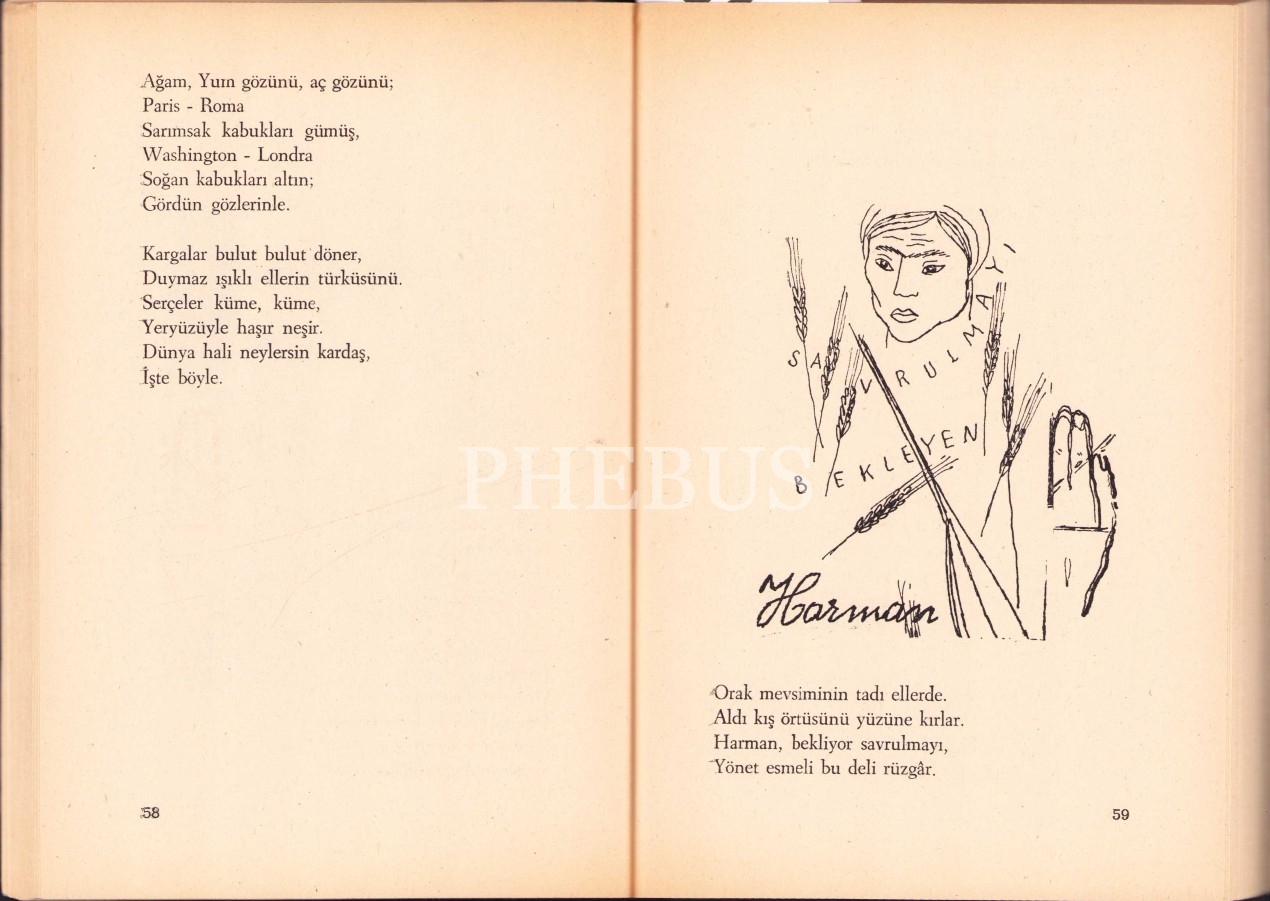 Ağam, Yum gözünü, aç gözünü;
Paris - Roma
Sarımsak kabukları gümüş,
Washington - Londra
Soğan kabukları altın;
Gördün gözlerinle.
Kargalar bulut bulut döner,
Duymaz ışıklı ellerin türküsünü.
Serçeler küme, küme,
Yeryüzüyle haşır neşir.
Dünya hali neylersin kardaş,
İşte böyle.
58
SAVRULMAYI
BEKLEYEN
Harman
Orak mevsiminin tadı ellerde.
Aldı kış örtüsünü yüzüne kırlar.
Harman, bekliyor savrulmayı,
Yönet esmeli bu deli rüzgâr.
59
PHEBUS